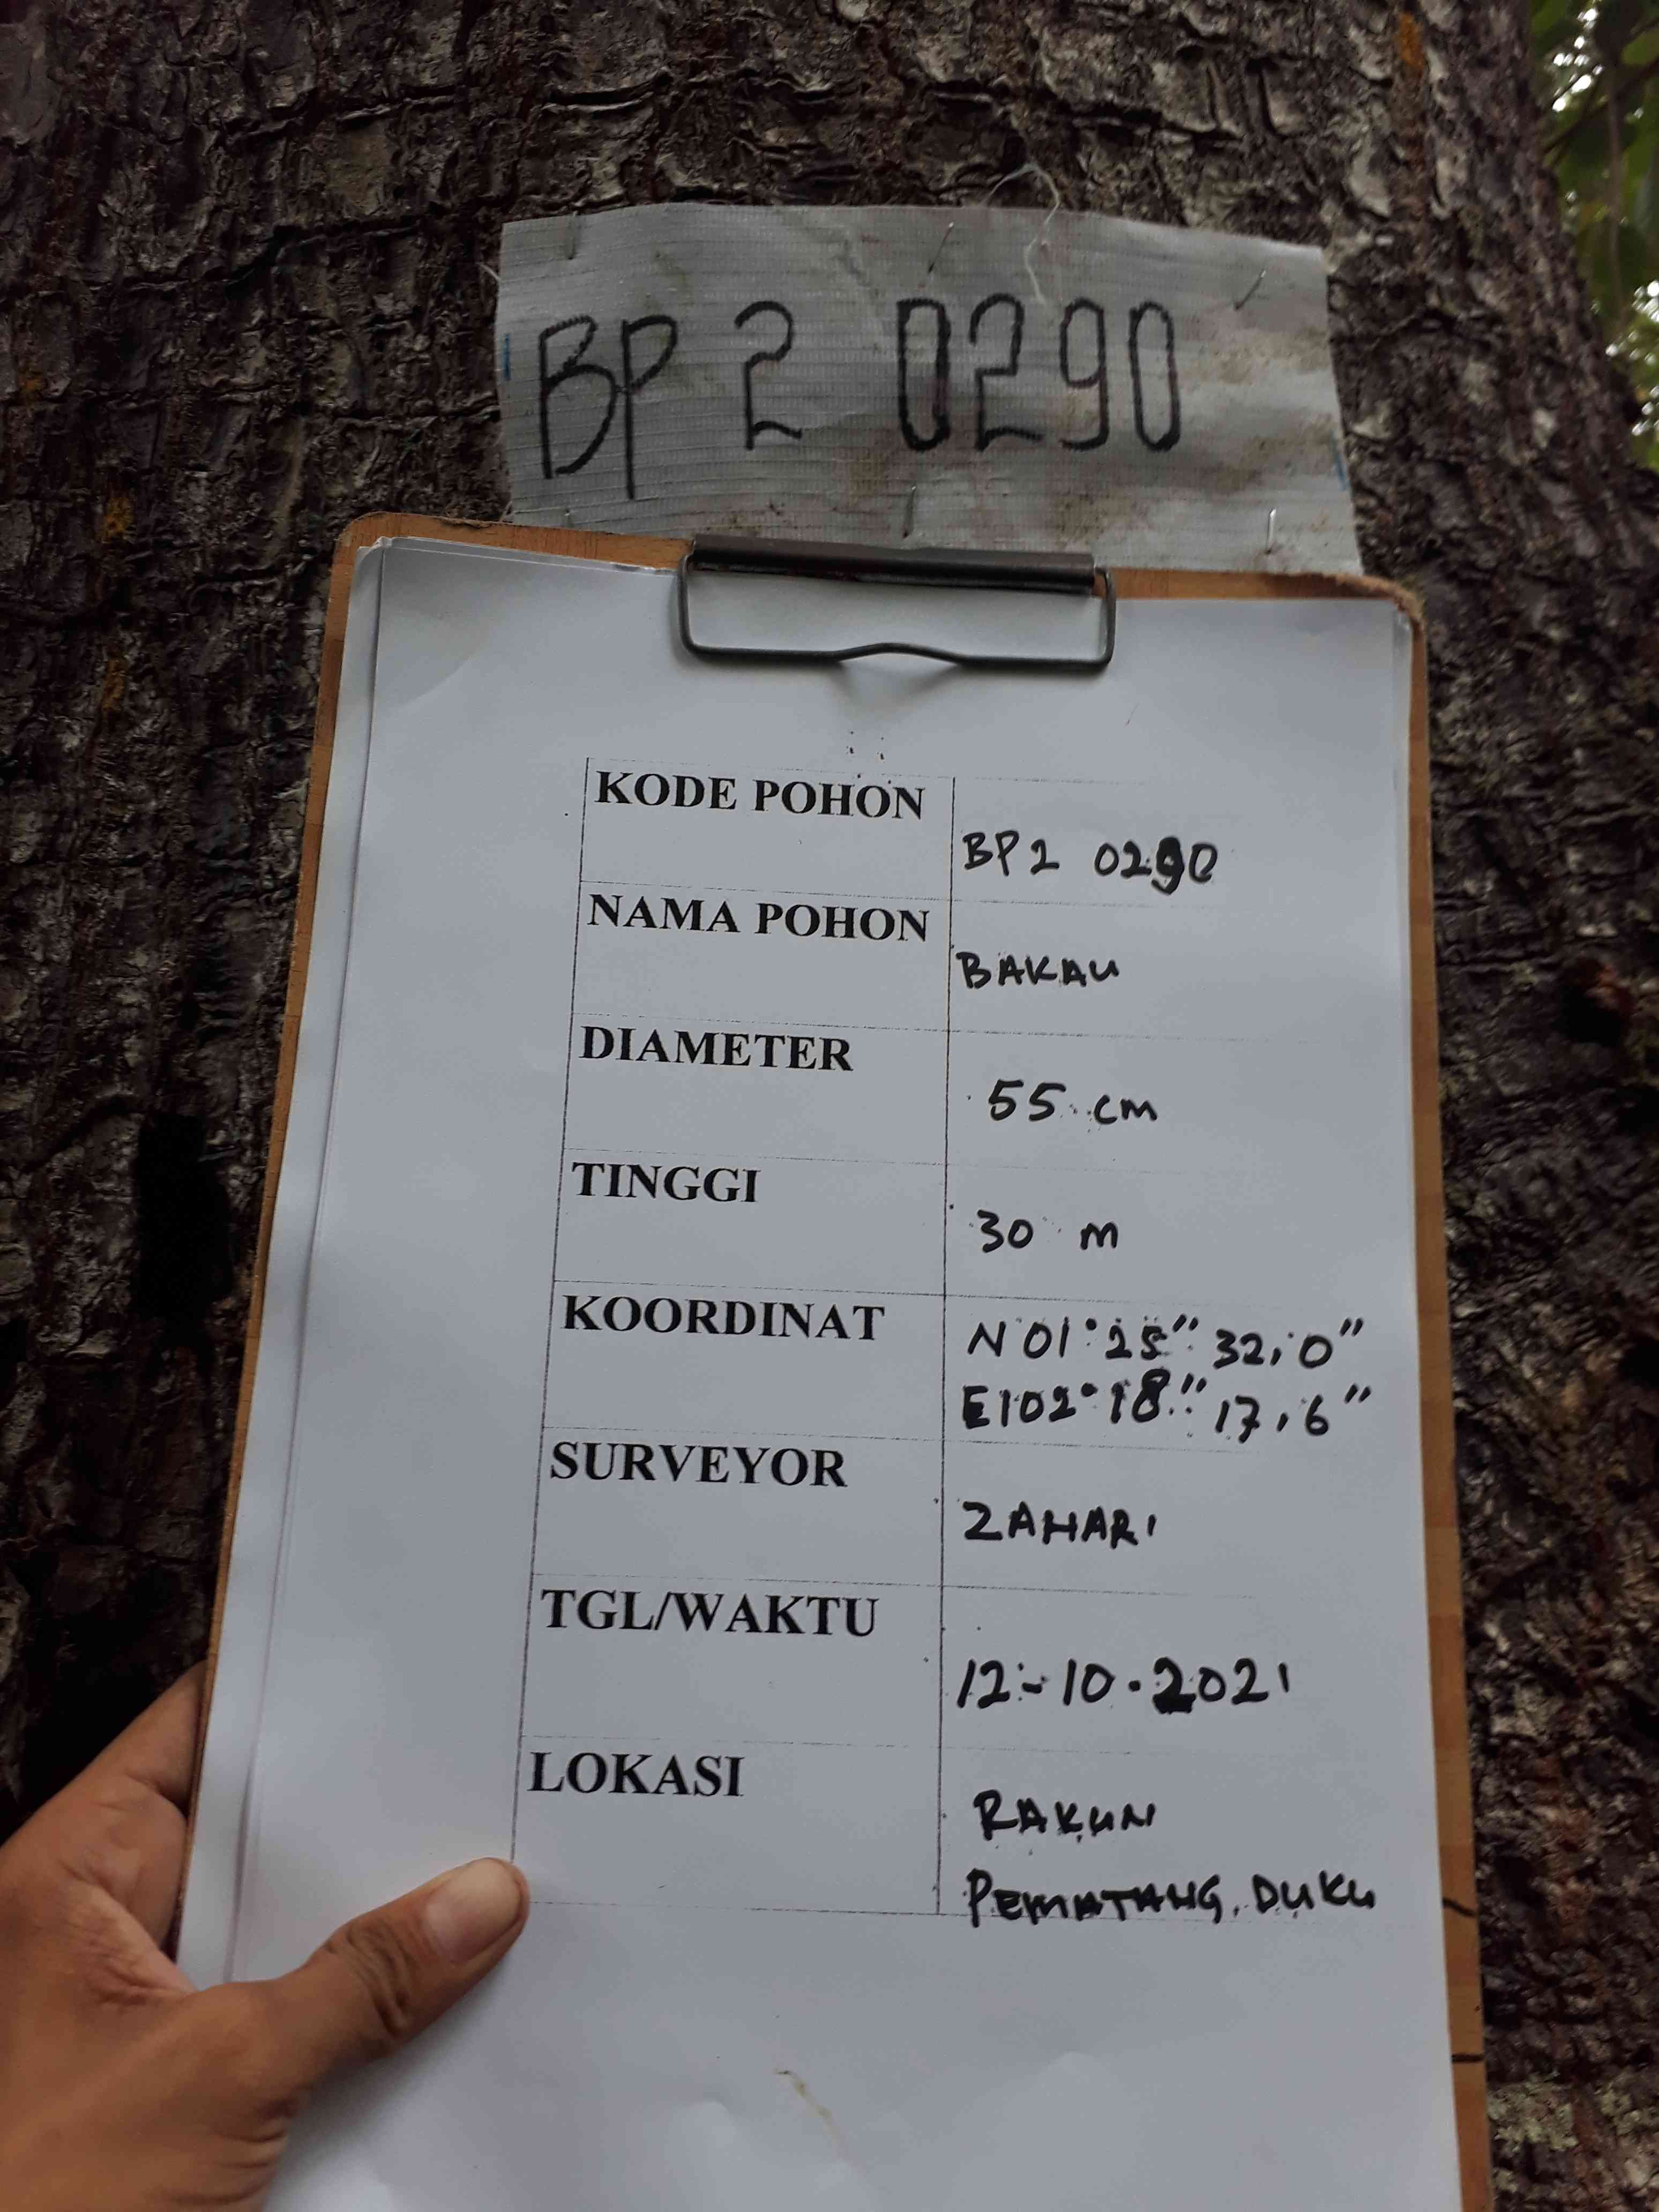 BP 2 0290
KODE POHON
BP2 0290
NAMA POHON
BAKAU
DIAMETER
55 cm
TINGGI
30 m
KOORDINAT
N 01° 25" 32,0"
E102° 18" 17,6"
SURVEYOR
ZAHARI
TGL/WAKTU
12-10-2021
LOKASI
RAKUN
PEMATANG DUKU